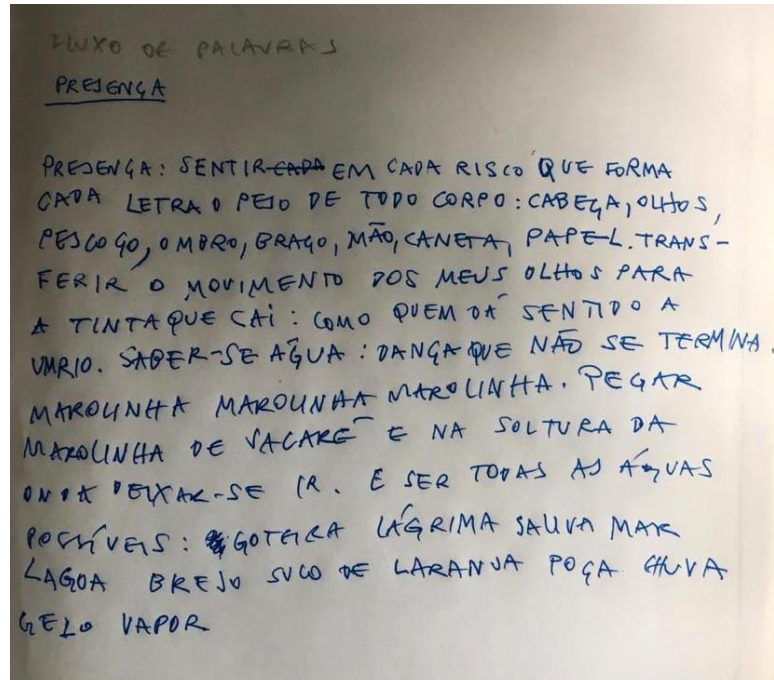 FLUXO DE PALAVRAS
PRESENÇA
PRESENÇA: SENTIR CADA EM CADA RISCO QUE FORMA
CADA LETRA O PESO DE TODO CORPO: CABEÇA, OLHOS,
PESCOÇO, OMBRO, BRAÇO, MÃO, CANETA, PAPEL. TRANS-
FERIR O MOVIMENTO DOS MEUS OLHOS PARA
A TINTA QUE CAI: COMO QUEM DÁ SENTIDO A
UM RIO. SABER-SE ÁGUA: DANÇA QUE NÃO SE TERMINA.
MAROLINHA MAROLINHA MAROLINHA. PEGAR
MAROLINHA DE JACARÉ E NA SOLTURA DA
ONDA DEIXAR-SE IR. E SER TODAS AS ÁGUAS
POSSÍVEIS: GOTEIRA LÁGRIMA SALIVA MAR
LAGOA BREJO SUCO DE LARANJA POÇA CHUVA
GELO VAPOR